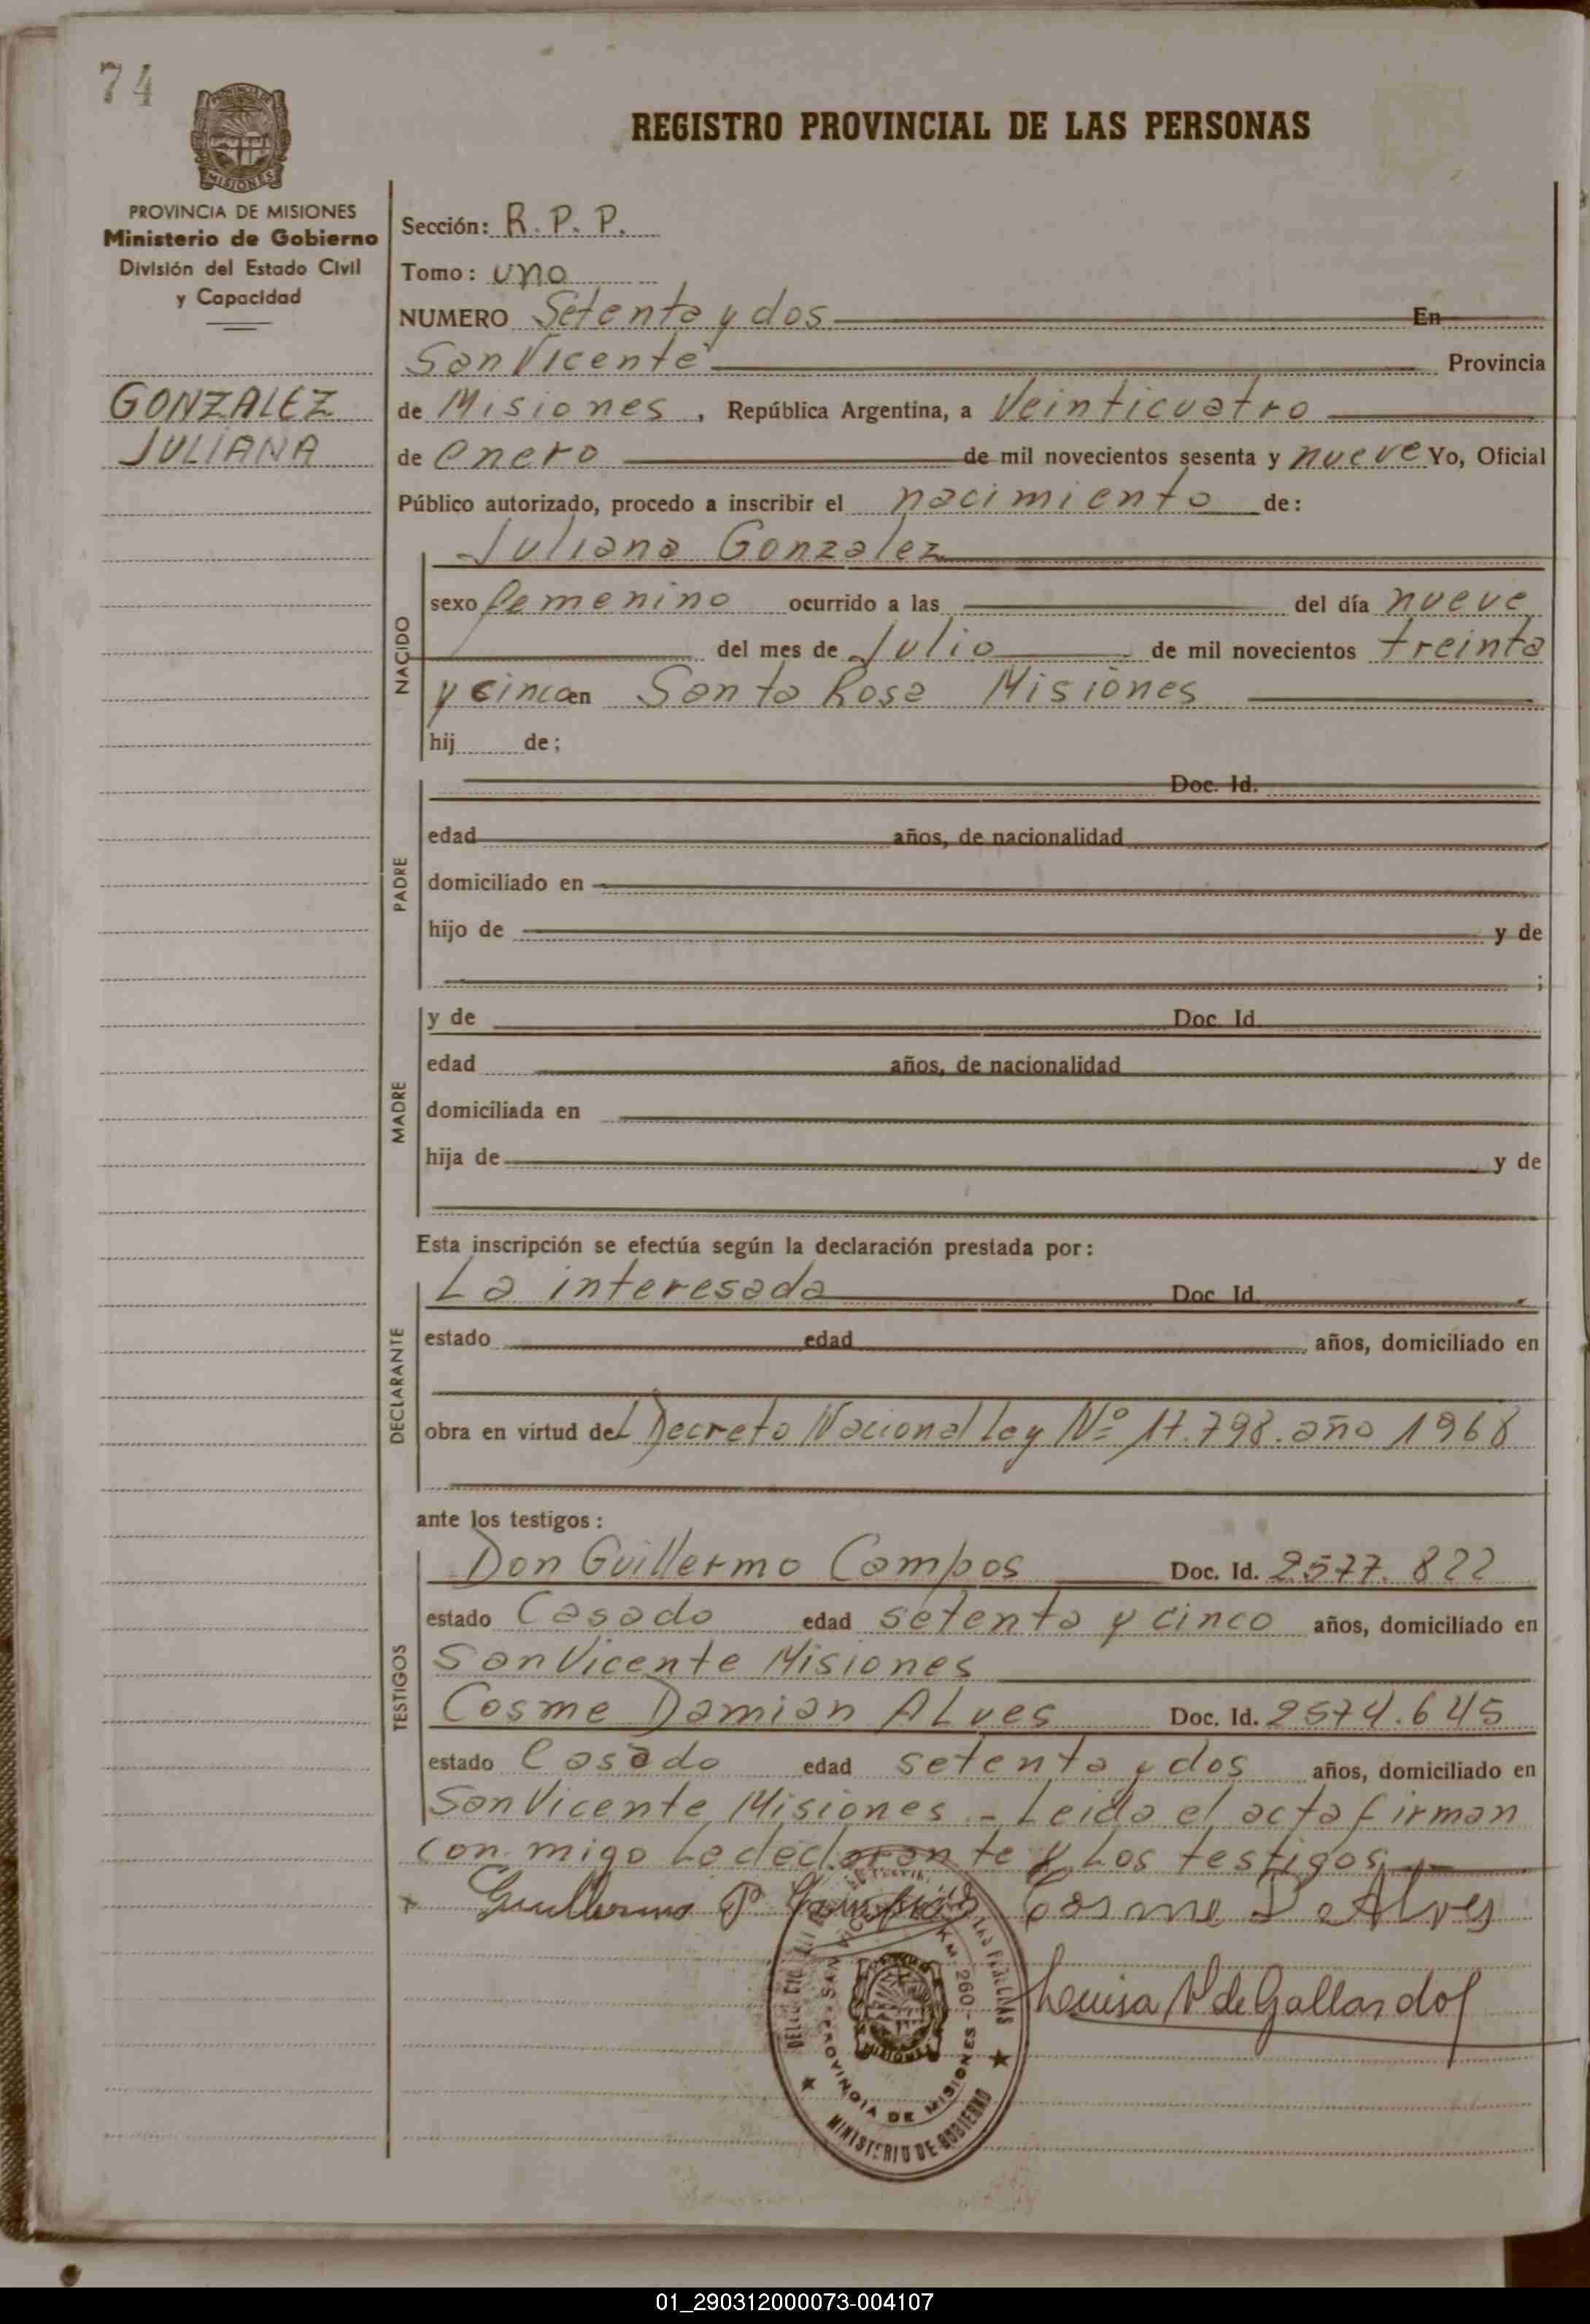 74
REGISTRO PROVINCIAL DE LAS PERSONAS
PROVINCIA DE MISIONES
Ministerio de Gobierno
División del Estado Civil
y Capacidad
GONZALEZ
JULIANA
Sección: R. P. P.
Tomo: uno
NUMERO Setenta y dos En
San Vicente Provincia
de Misiones, República Argentina, a Veinticuatro
de enero de mil novecientos sesenta y nueve Yo, Oficial
Público autorizado, procedo a inscribir el nacimiento de:
NACIDO
Juliana Gonzalez
sexo femenino ocurrido a las del día nueve
del mes de Julio de mil novecientos treinta
y cinco en Santa Rosa Misiones
hij de;
PADRE
Doc. Id.
edad años, de nacionalidad
domiciliado en
hijo de y de
;
MADRE
y de Doc. Id
edad años, de nacionalidad
domiciliada en
hija de y de
Esta inscripción se efectúa según la declaración prestada por:
DECLARANTE
La interesada Doc. Id.
estado edad años, domiciliado en
obra en virtud del Decreto Nacional ley Nº 17.798. año 1968
ante los testigos:
TESTIGOS
Don Guillermo Campos Doc. Id. 2577.822
estado Casado edad setenta y cinco años, domiciliado en
San Vicente Misiones
Cosme Damian ALves Doc. Id. 2574.645
estado Casado edad setenta y dos años, domiciliado en
San Vicente Misiones - Leida el acta firman
con migo La declarante y Los testigos
Guillermo P Campos Cosme D Alves
Louisa V de Gallardo
SAN VICENTE KM. 260 - PROVINCIA DE MISIONES
MINISTERIO DE GOBIERNO
MISIONES
01_290312000073-004107